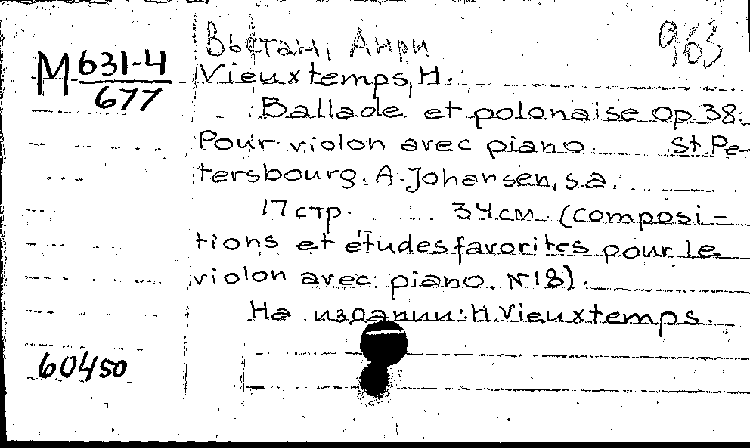 Вьетан, Анри 963
М 631-4
677
Vieuxtemps, H.
Ballade et polonaise op 38.
Pour violon avec piano. St. Pe-
tersbourg. A. Johansen, s.a.
17 стр. 34 см. (composi-
tions et études favorites pour le
violon avec piano. N 18).
На издании: H. Vieuxtemps.
60450